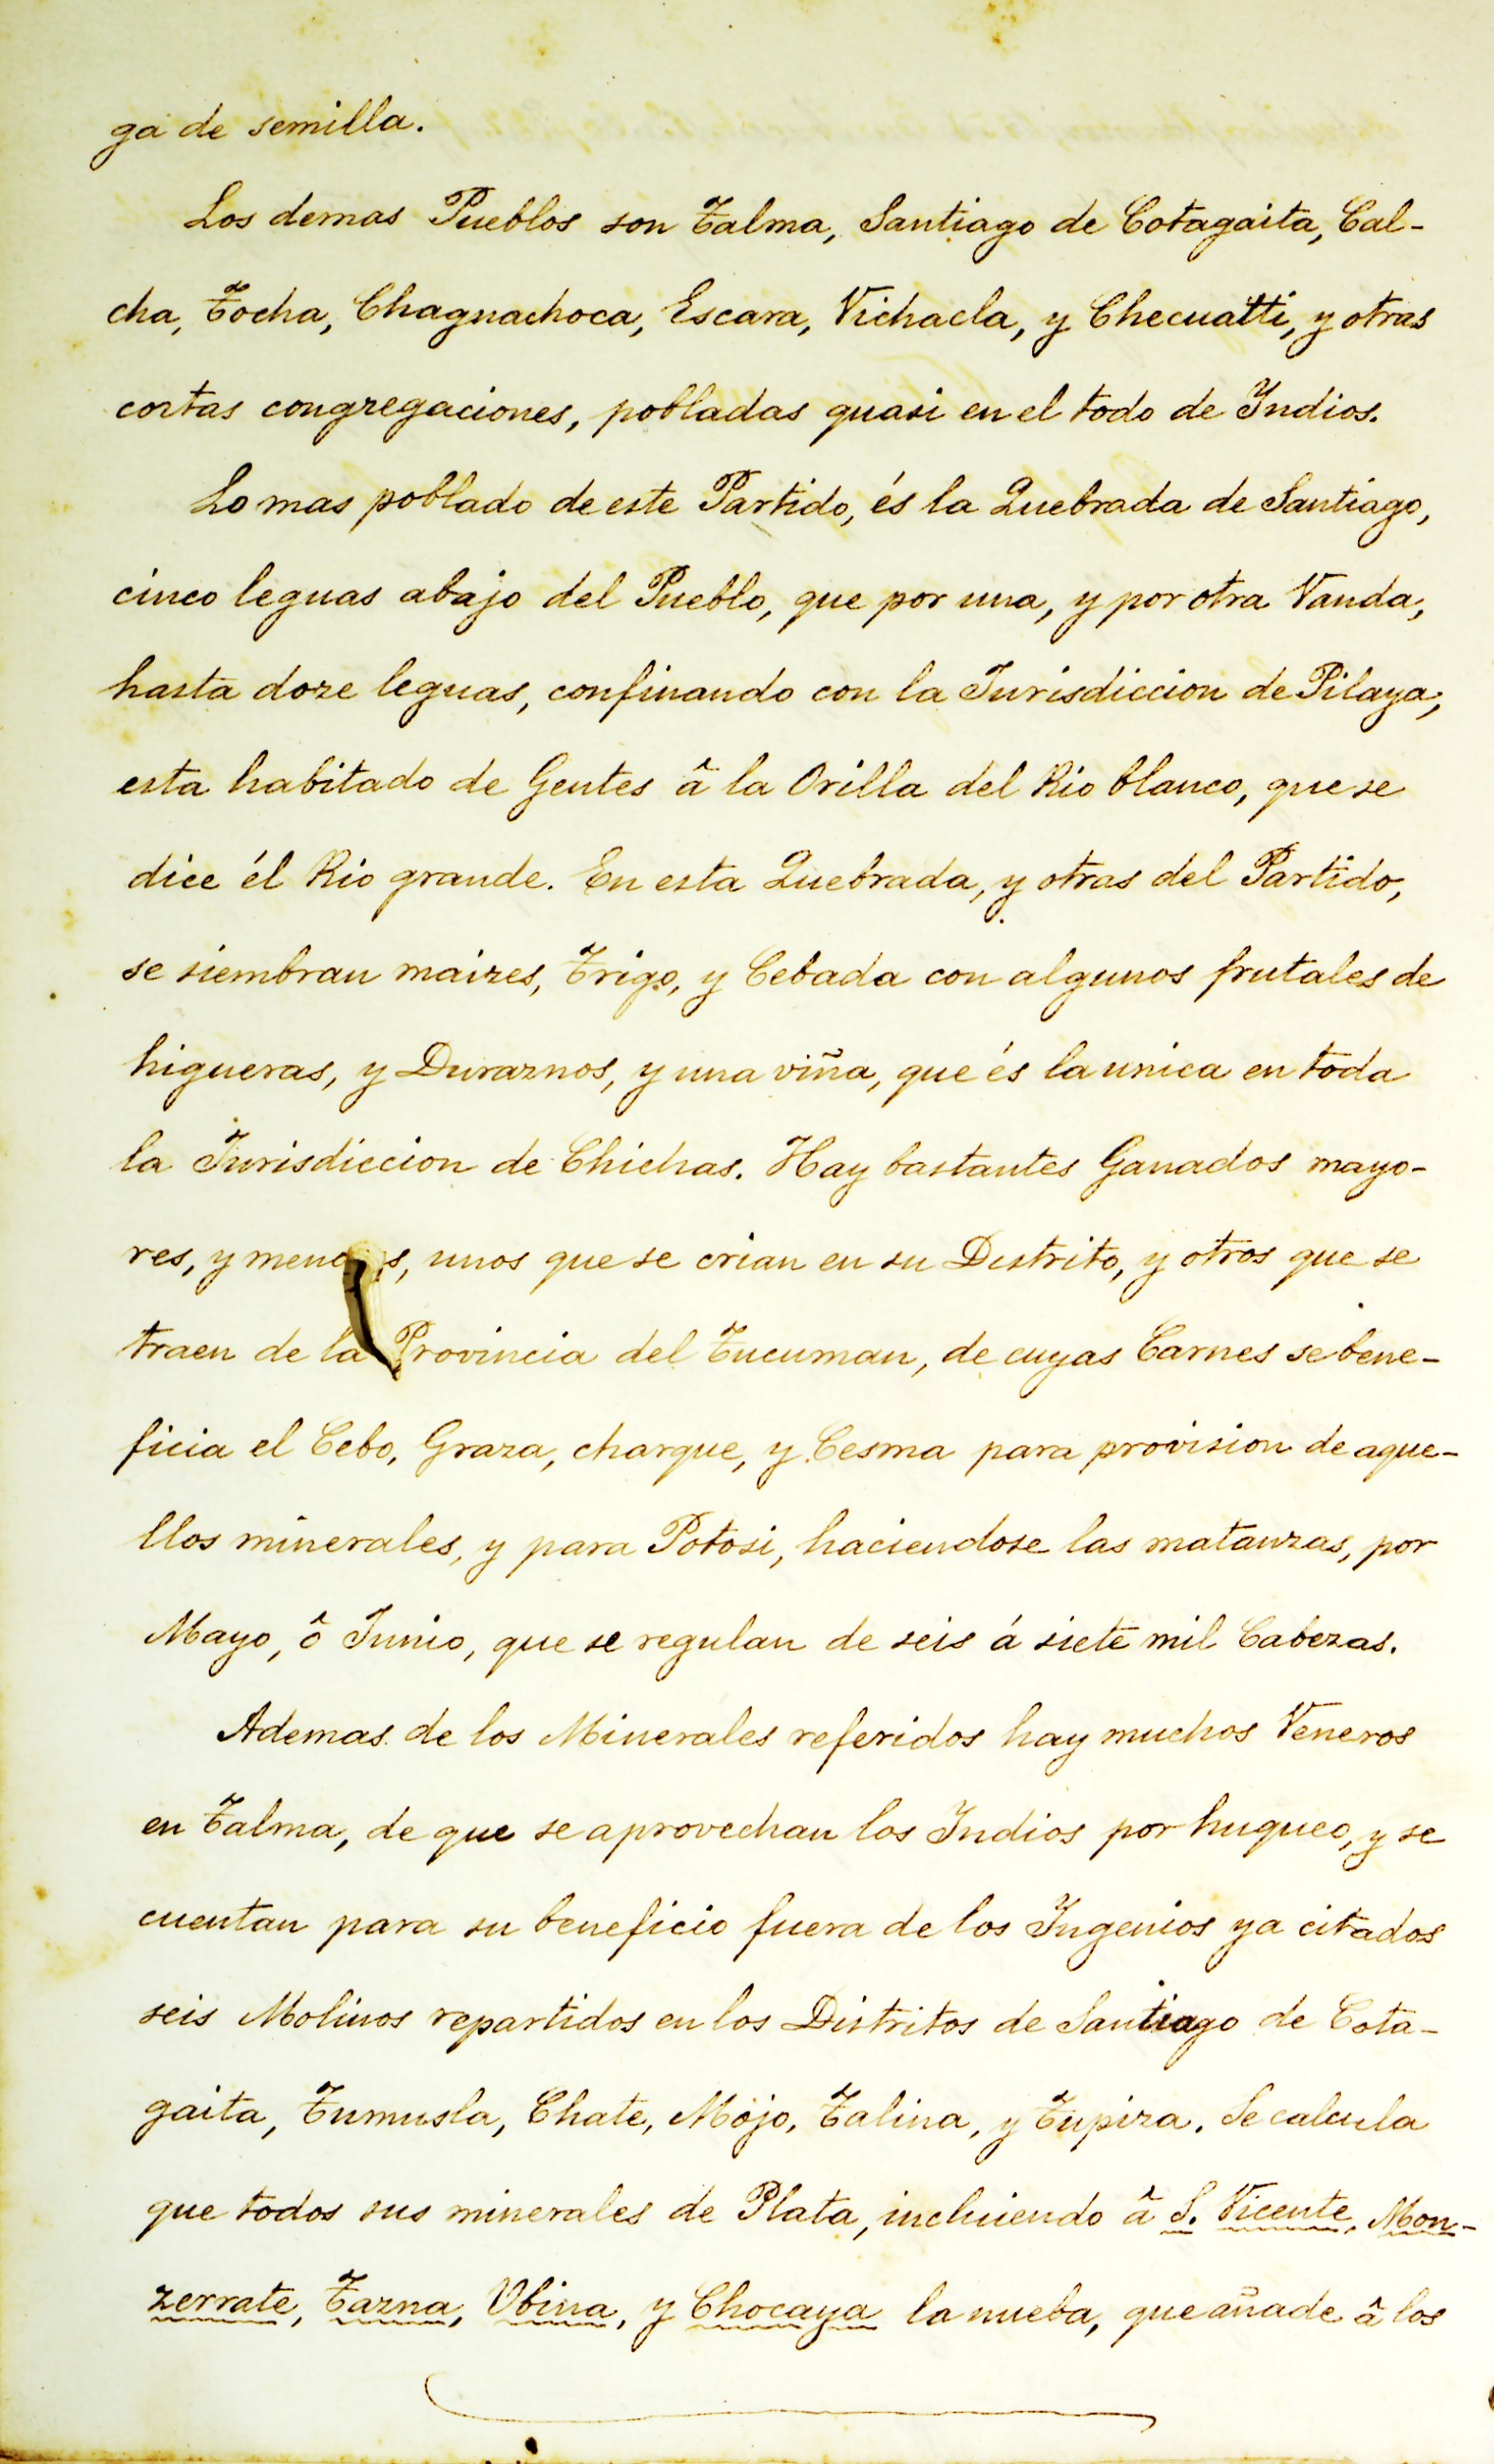 ga de semilla.
Los demas Pueblos son Talma, Santiago de Cotagaita, Cal-
cha, Tocha, Chaguachoca, Escara, Vichacla, y Checuatti, y otras
cortas congregaciones, pobladas quasi en el todo de Yndios.
Lo mas poblado de este Partido, és la Quebrada de Santiago,
cinco leguas abajo del Pueblo, que por una, y por otra Vanda,
hasta doze leguas, confinando con la Jurisdiccion de Pilaya,
esta habitado de Gentes â la Orilla del Rio blanco, que se
dice él Rio grande. En esta Quebrada, y otras del Partido,
se siembran maizes, Trigo, y Cebada con algunos frutales de
higueras, y Duraznos, y una viña, que és la unica en toda
la Jurisdiccion de Chichas. Hay bastantes Ganados mayo-
res, y menos, unos que se crian en su Distrito, y otros que se
traen de la Provincia del Tucuman, de cuyas Carnes se bene-
ficia el Cebo, Graza, charque, y Cesma para provision de aque-
llos minerales, y para Potosi, haciendose las matanzas, por
Mayo, ô Junio, que se regulan de seis á siete mil Cabezas.
Ademas de los Minerales referidos hay muchos Veneros
en Talma, de que se aprovechan los Yndios por huqueo, y se
cuentan para su beneficio fuera de los Yngenios ya citados
seis Molinos repartidos en los Distritos de Santiago de Cota-
gaita, Tumusla, Chate, Mojo, Talina, y Tupiza. Se calcula
que todos sus minerales de Plata, incluiendo â S. Vicente, Mon-
zerrate, Tazna, Ubina, y Chocaya la nueba, que añade â los